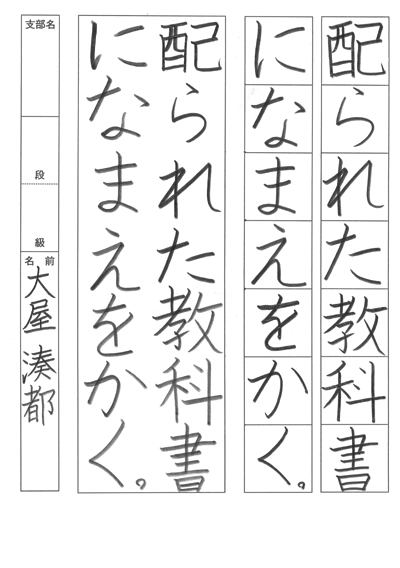 配られた教科書
になまえをかく。
配られた教科書
になまえをかく。
支部名
段
級
名前
大屋湊都